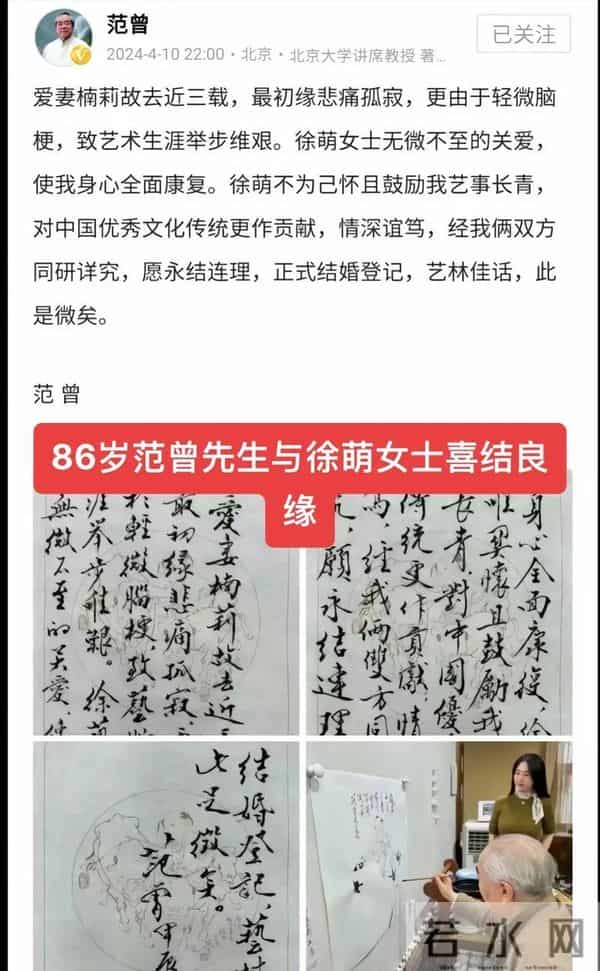 范曾
已关注
2024-4-10 22:00・北京・北京大学讲席教授 著...
爱妻楠莉故去近三载，最初缘悲痛孤寂，更由于轻微脑
梗，致艺术生涯举步维艰。徐萌女士无微不至的关爱，
使我身心全面康复。徐萌不为己怀且鼓励我艺事长青，
对中国优秀文化传统更作贡献，情深谊笃，经我俩双方
同研详究，愿永结连理，正式结婚登记，艺林佳话，此
是微矣。
范 曾
86岁范曾先生与徐萌女士喜结良
缘
愛妻楠莉故去近三
最初缘悲痛孤寂
於輕微腦梗，致藝
涯举步維艱。徐
無微不至的关爱，使
身心全面康復，徐
懷且鼓勵我
長青，對中國優
傳統更作貢獻，情
經我倆雙方同
願永结連理
结婚登记，藝林
此足徵矣。
范曾甲辰
若水网